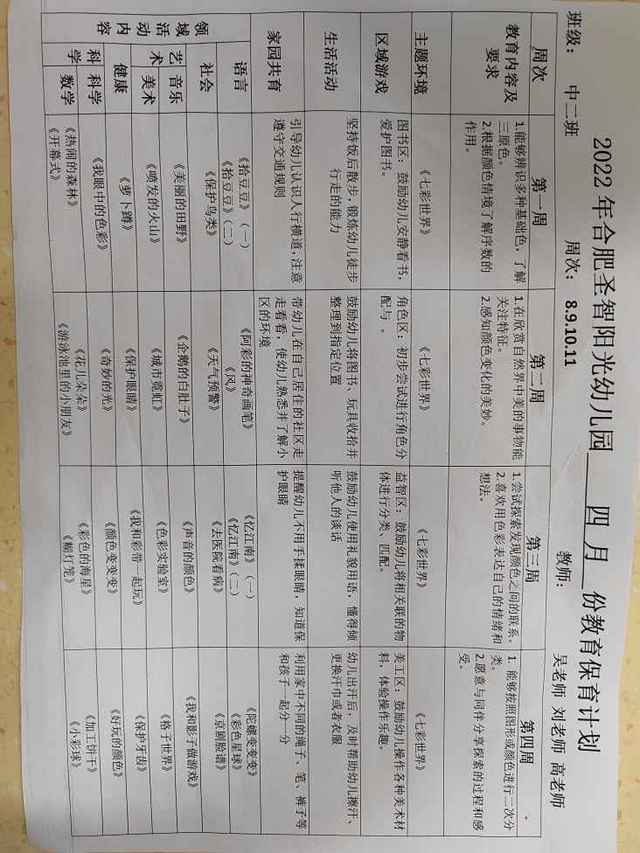 2022 年合肥圣智阳光幼儿园 四 月 份教育保育计划
班级： 中二班 周次： 8.9.10.11 教师： 吴老师 刘老师 高老师
周次 第一周 第二周 第三周 第四周
教育内容及要求
1.能够辨识多种基础色，了解三原色。
2.根据颜色情境了解序数的作用。
1.在欣赏自然界中美的事物能关注特征。
2.感知颜色变化的美妙。
1.尝试探索发现颜色之间的联系。
2.喜欢用色彩表达自己的情绪和想法。
1. 能够按照图形或颜色进行二次分类。
2.愿意与同伴分享探索的过程和感受。
主题环境 《七彩世界》 《七彩世界》 《七彩世界》 《七彩世界》
区域游戏
图书区：鼓励幼儿安静看书，爱护图书。
角色区：初步尝试进行角色分配与 。
益智区：鼓励幼儿将相关联的物体进行分类、匹配。
美工区：鼓励幼儿操作各种美术材料，体验操作乐趣。
生活活动
坚持饭后散步，锻炼幼儿徒步行走的能力
鼓励幼儿将图书、玩具收拾并整理到指定位置
鼓励幼儿使用礼貌用语，懂得倾听他人的谈话
幼儿出汗后，及时帮助幼儿擦汗、更换汗巾或者衣服
家园共育
引导幼儿认识人行横道，注意遵守交通规则
带幼儿在自己居住的社区走走看看，使幼儿熟悉并了解小区的环境
提醒幼儿不用手揉眼睛，知道保护眼睛
利用家中不同的绳子、笔、裤子等和孩子一起分一分
领域活动内容
语言
《拾豆豆》（一）
《拾豆豆》（二）
《阿彩的神奇画笔》
《风》
《忆江南》（一）
《忆江南》（二）
《陀螺变变变》
《彩色星球》
社会 《保护鸟类》 《天气预警》 《去医院看病》 《京剧脸谱》
艺术
音乐 《美丽的田野》 《企鹅的白肚子》 《声音的颜色》 《我和影子做游戏》
美术 《喷发的火山》 《城市霓虹》 《色彩实验室》 《格子世界》
健康 《萝卜蹲》 《保护眼睛》 《我和彩带一起玩》 《保护牙齿》
科学
科学 《我眼中的色彩》 《奇妙的光》 《颜色变变变》 《好玩的颜色》
数学
《热闹的森林》
《开幕式》
《花儿朵朵》
《游泳池里的小朋友》
《彩色的海星》
《糖灯笼》
《加工饼干》
《小彩球》